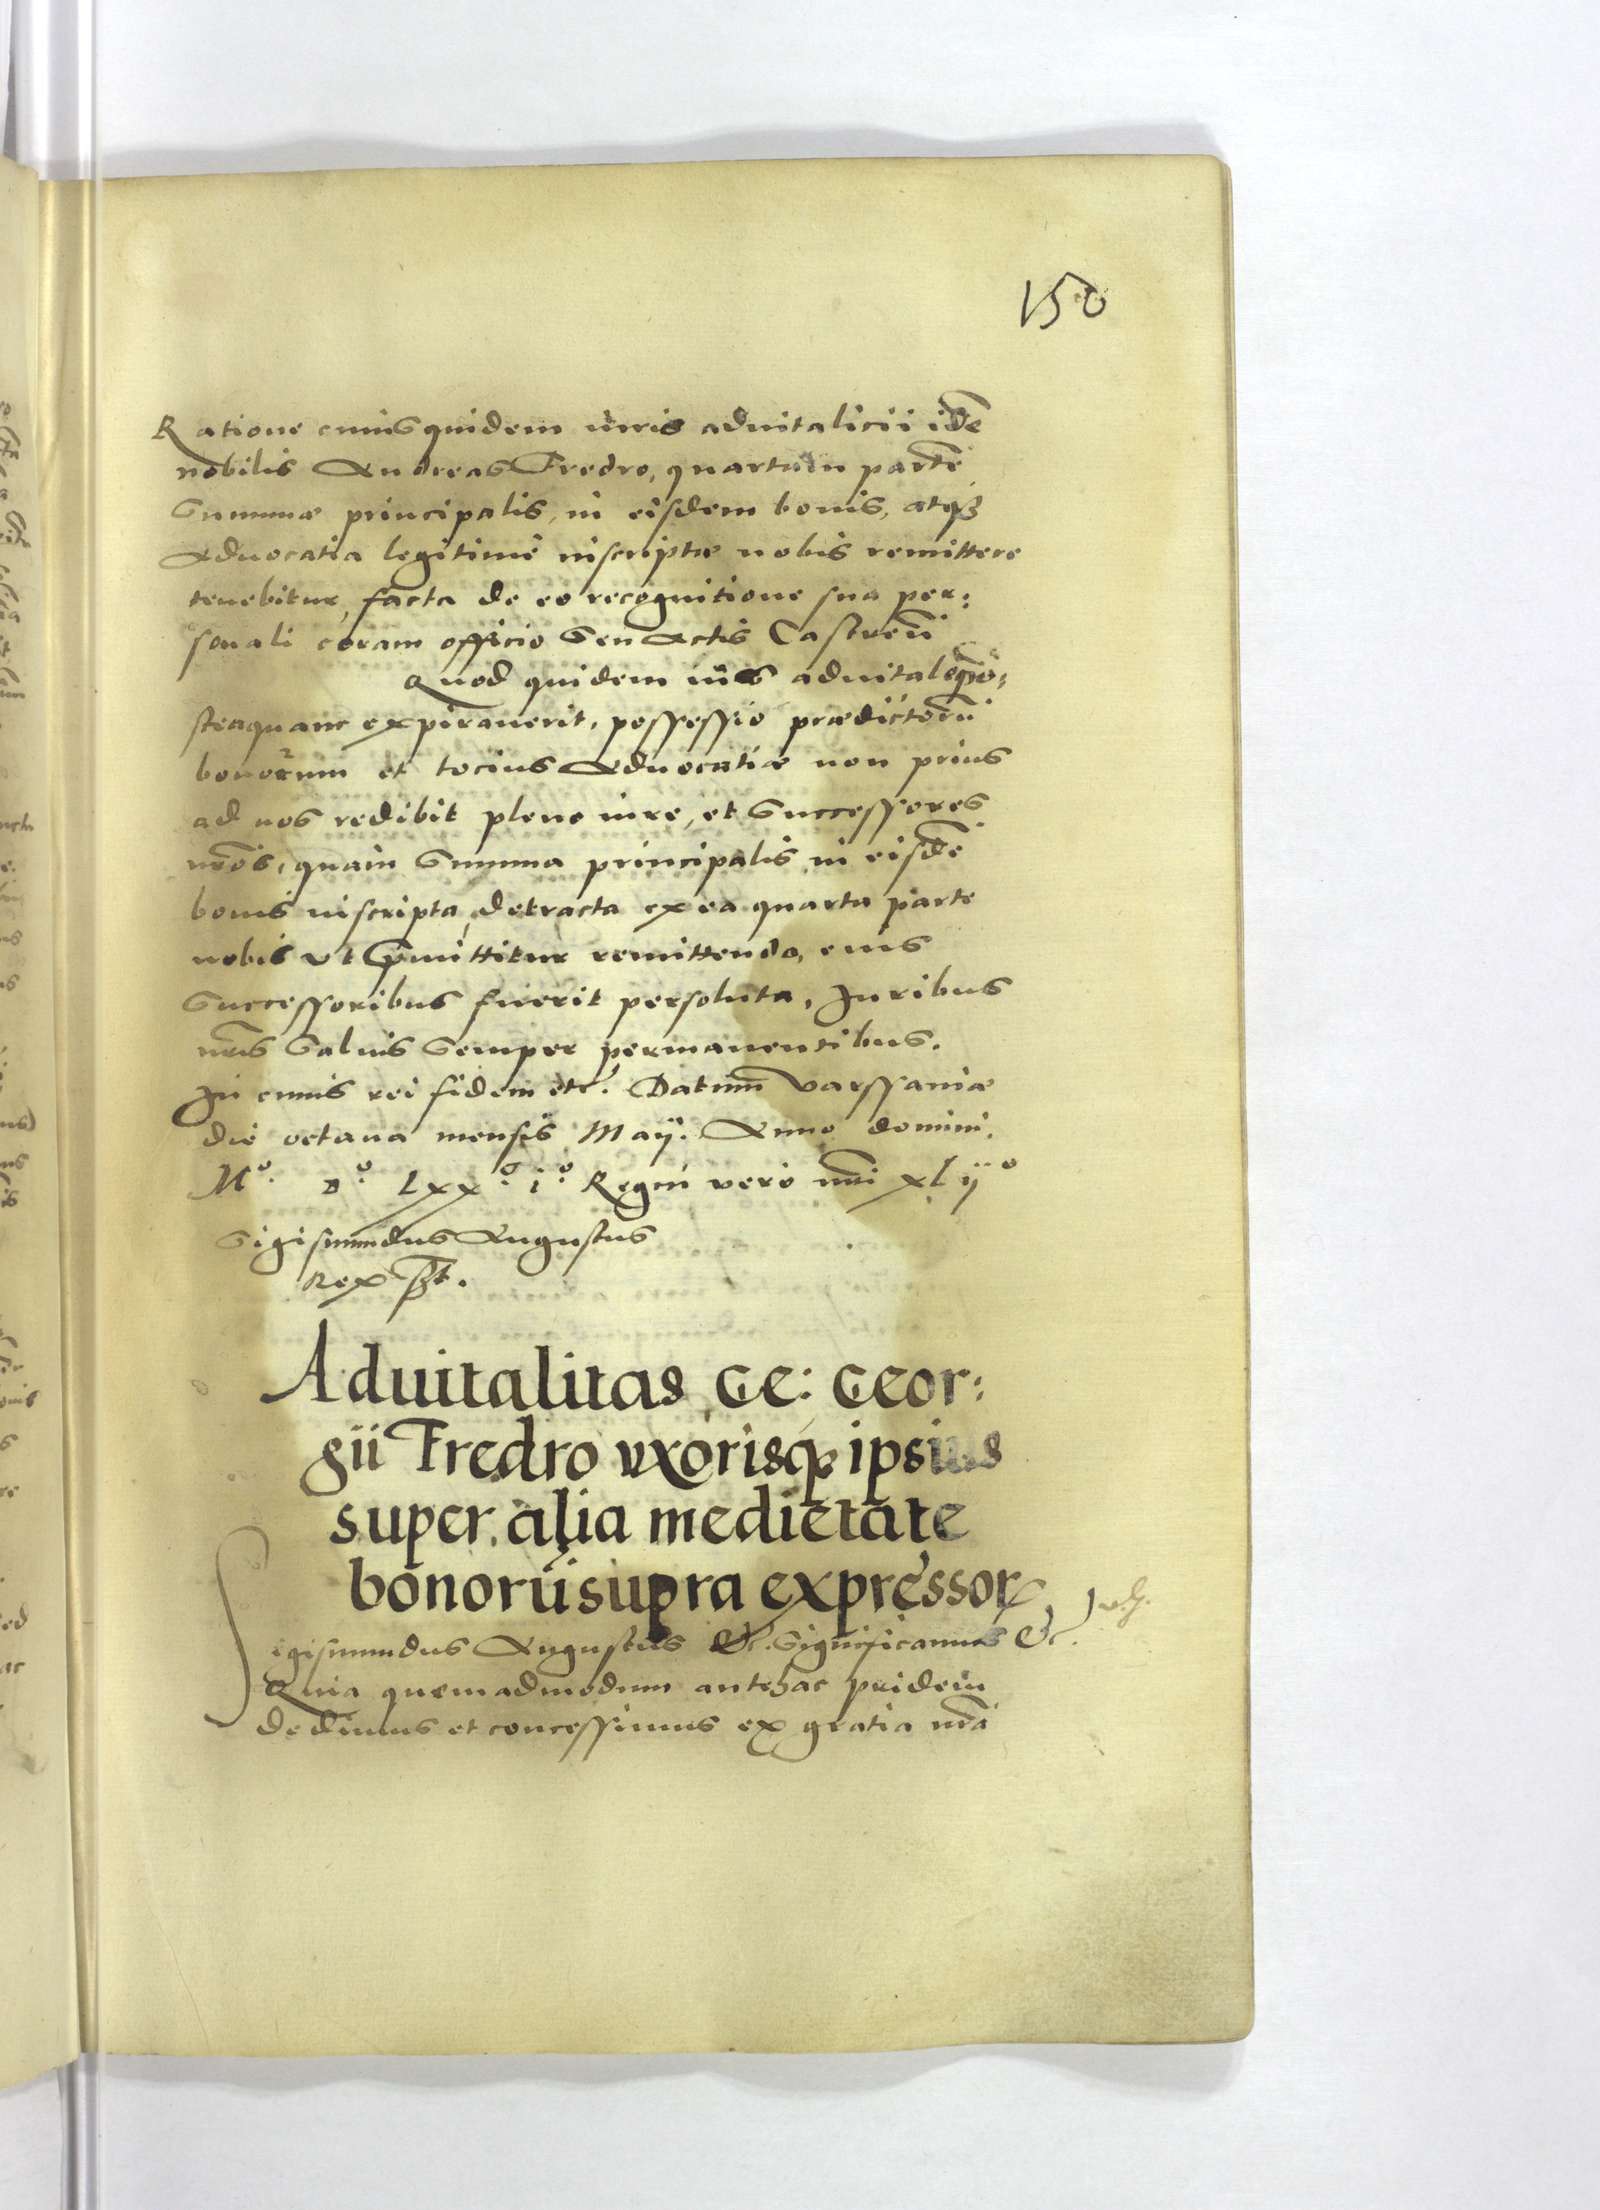 150
Ratione cuius quidem iuris aduitalicii idē
nobilis Andreas Fredro, quartam partē
Summæ principalis, in eisdem bonis, atqꝫ
Aduocatia legitimè inscriptæ nobis remittere
tenebitur, facta de eo recognitione sua per:
sonali coram officio Seu Actis Castreñ
Quod quidem ius aduitalē po:
steaquam expirauerit, possessio prædictorū
bonorum et tocius Aduocatiæ non prius
ad nos redibit pleno iure, et Successores
nr̄os, quam Summa principalis in eisdē
bonis inscripta, detracta ex ea quarta parte
nobis vt p̄mittitur remittenda, eius
Successoribus fuerit persoluta, Juribus
nr̄is Saluis Semper permanentibus.
In cuius rei fidem etc. Datum Varssauiæ
die octaua mensis Maij. Anno domini.
Mº. Dº. Lxxº. iº. Regni vero nr̄i xlijº
Sigismundus Augustus
Rex sst.
Aduitalitas Ge: Geor:
gii Fredro vxorisqꝫ ipsius
super alia medietate
bonorū supra expressorꝝ
Sigismundus Augustus Etc. Significamus Etc.
Quia quemadmodum antehac pridem
dedimus et concessimus ex gratia nr̄a